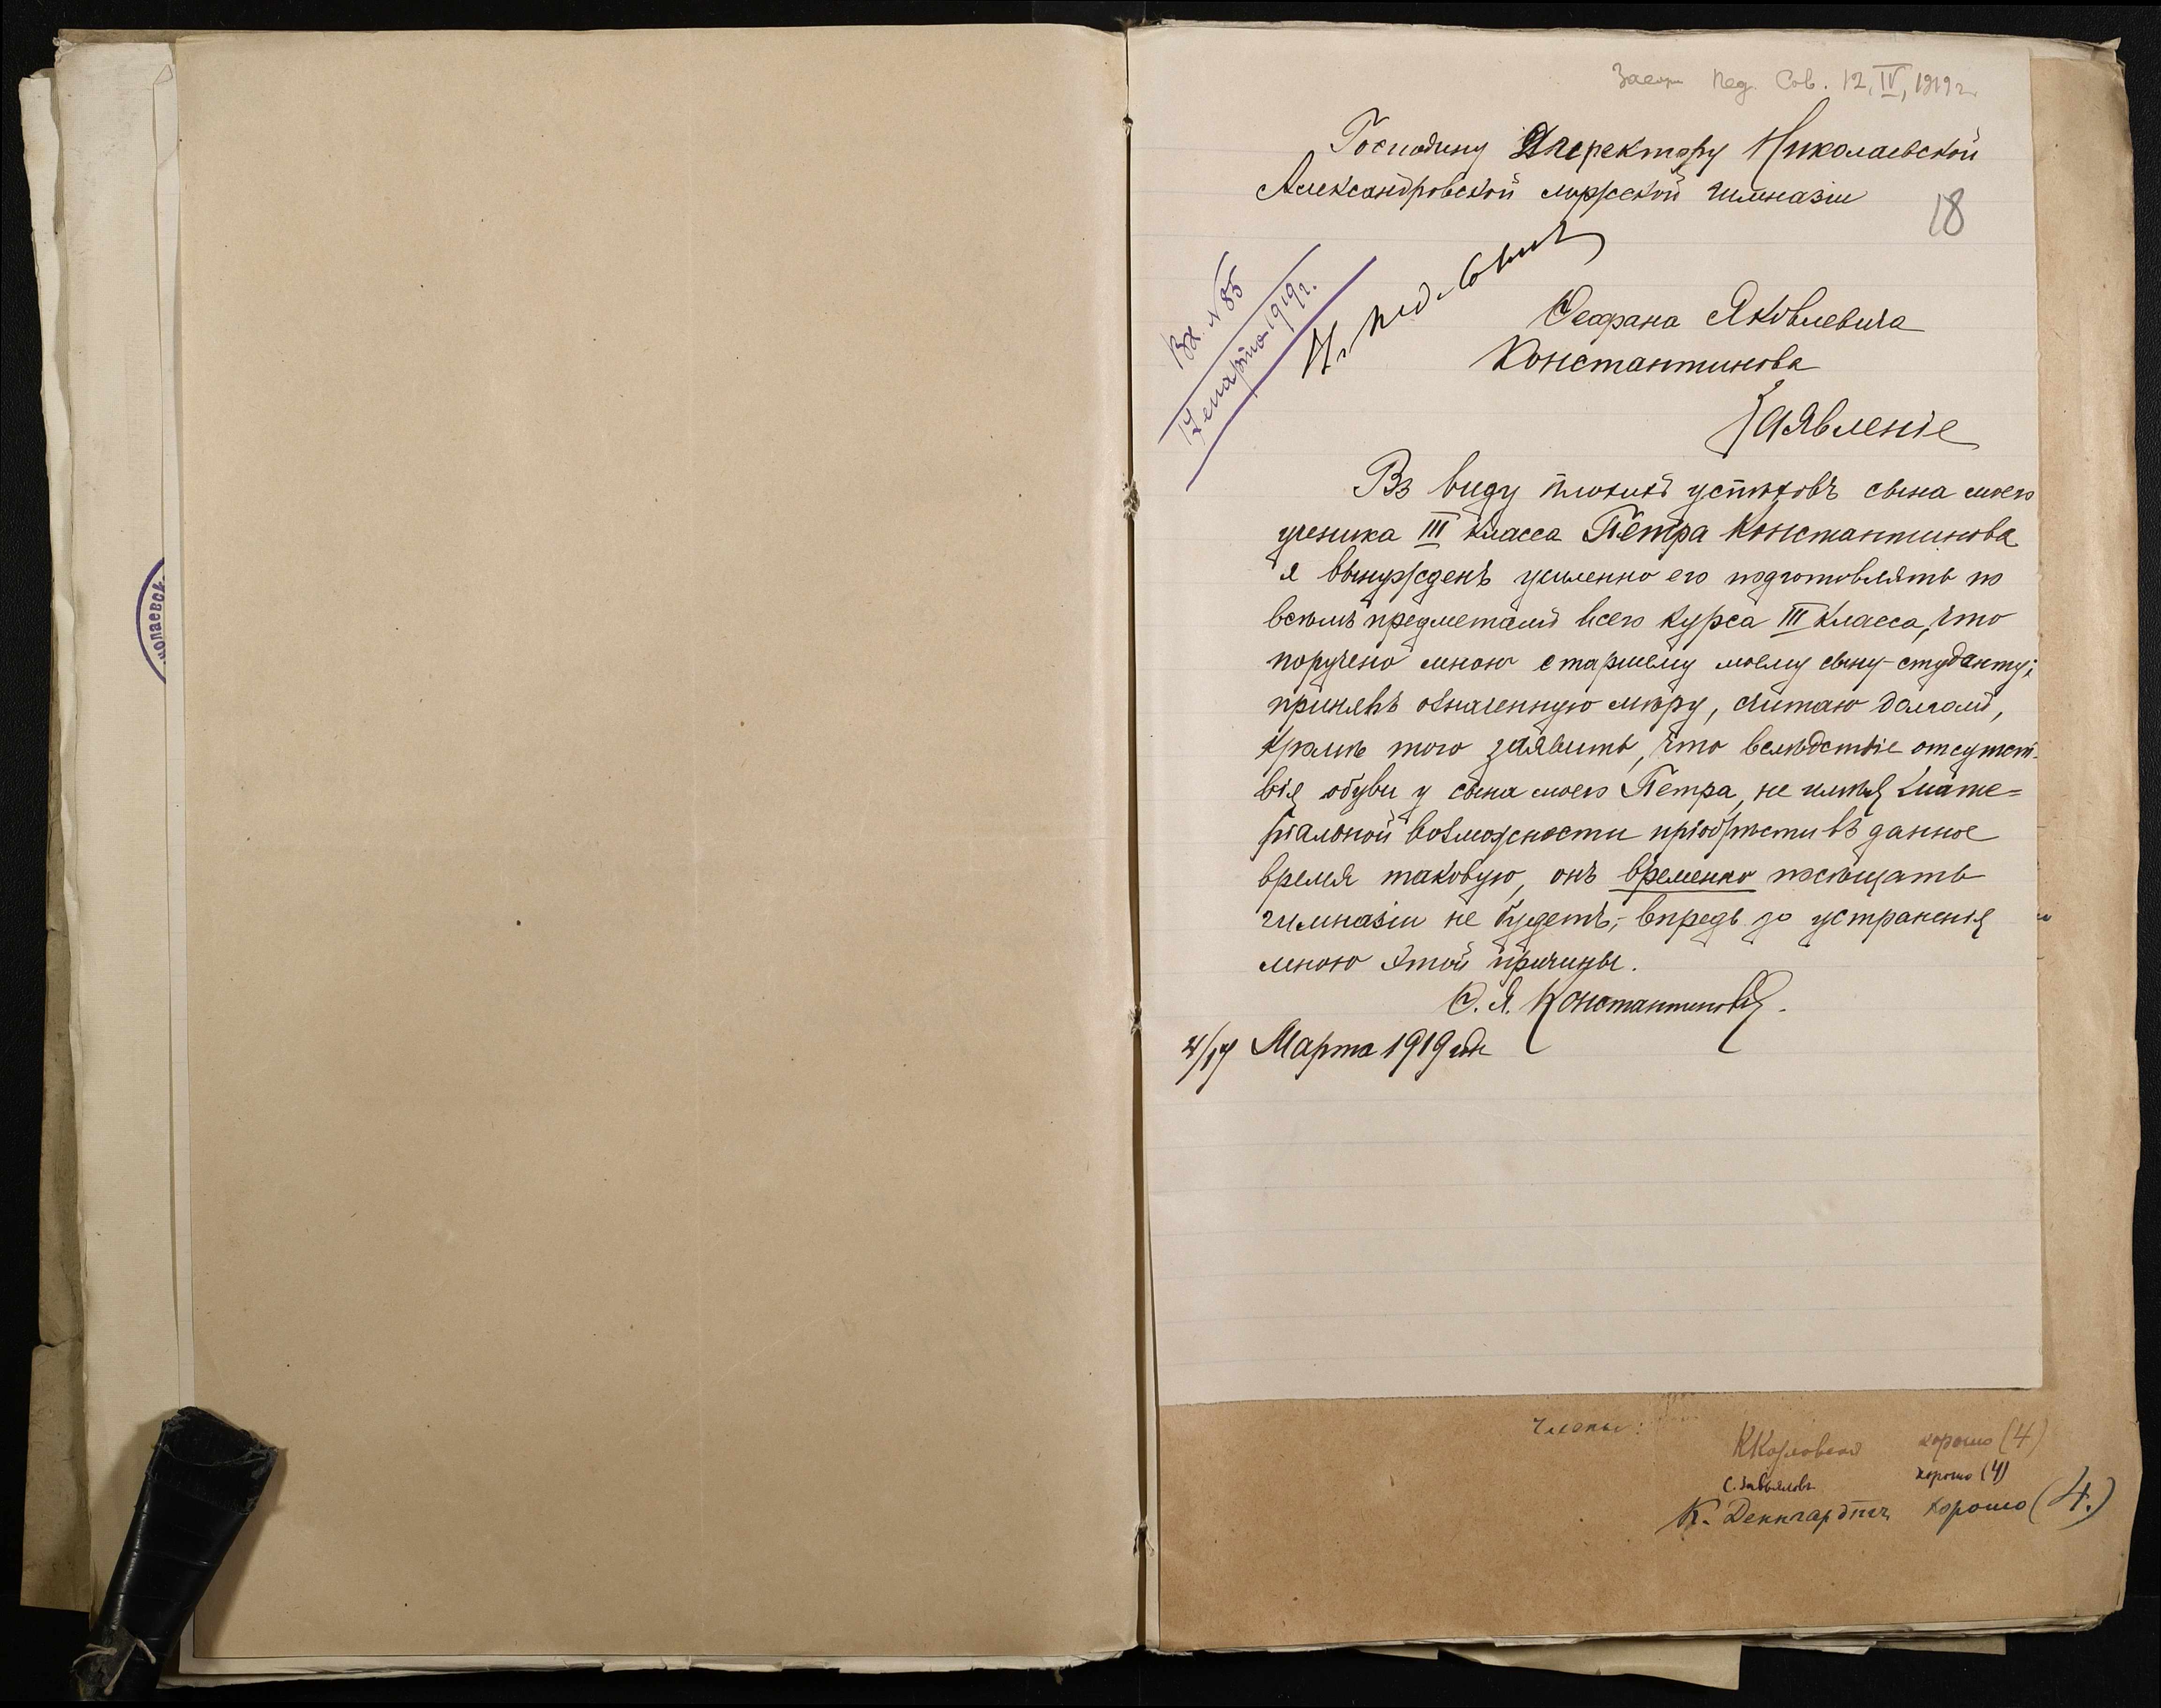 Засѣд. Пед. Сов. 12, IV, 1919 г.
Господину Директору Николаевской
Александровской мужской гимназіи
18
Вх. № 85
17 марта 1919 г.
Въ пед. Совѣтъ
Яковлевича
Константинова
Заявленіе
Въ виду плохихъ успѣховъ сына моего
ученика III класса Петра Константинова
я вынужденъ усиленно его подготовлять по
всѣмъ предметамъ всего курса III класса, что
поручено мною старшему моему сыну-студенту;
принявъ означенную мѣру, считаю долгомъ,
кромѣ того заявить, что вслѣдствіе отсутст-
вія обуви у сына моего Петра, не имѣя мате=
ріальной возможности пріобрѣсти въ данное
время таковую, онъ временно посѣщать
гимназіи не будетъ,- впредь до устраненія
мною этой причины.
Я. Константиновъ.
4/17 Марта 1919 года
Члены:
хорошо (4)
С. Завьяловъ хорошо (4)
К. Денгардтъ хорошо (4.)
колаевск